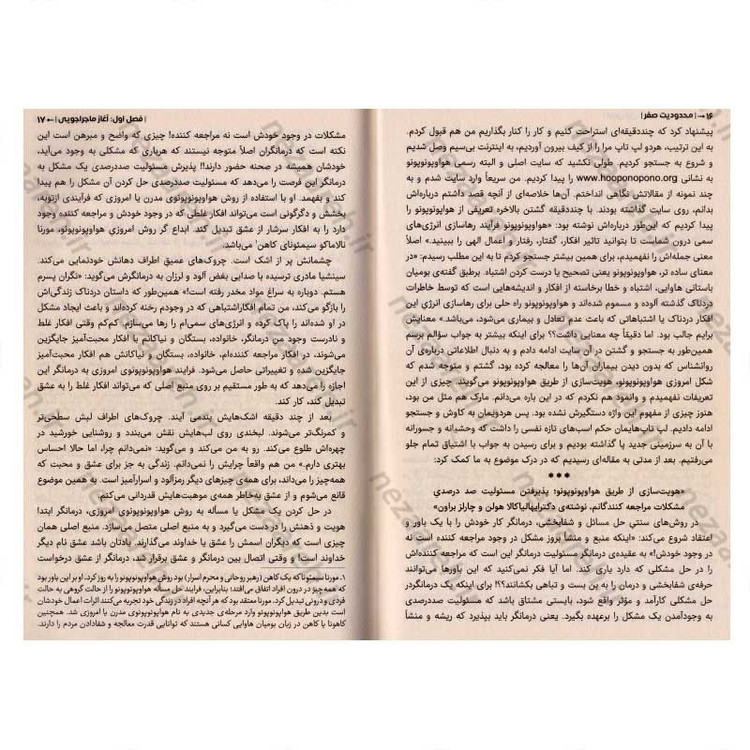 ۱۶ → | محدودیت صفر |
پیشنهاد کرد که چنددقیقه‌ای استراحت کنیم و کار را کنار بگذاریم من هم قبول کردم.
به این ترتیب، هردو لپ تاپ مرا را از کیف بیرون آوردیم، به اینترنت بی‌سیم وصل شدیم
و شروع به جستجو کردیم. طولی نکشید که سایت اصلی و البته رسمی هواوپونوپونو
به نشانی www.hooponopono.org را پیدا کردیم. من سریعاً وارد سایت شدم و به
چند نمونه از مقالاتش نگاهی انداختم. آن‌ها خلاصه‌ای از آنچه قصد داشتم درباره‌اش
بدانم، روی سایت گذاشته بودند. با چنددقیقه گشتن بالاخره تعریفی از هواوپونوپونو را
پیدا کردیم که این‌طور درباره‌اش نوشته بود: «هواوپونوپونو فرآیند رهاسازی انرژی‌های
سمی درون شماست تا بتوانید تاثیر افکار، گفتار، رفتار و اعمال الهی را ببینید.» اصلاً
معنی جمله‌اش را نفهمیدم، برای همین بیشتر جستجو کردم تا به این مطلب رسیدم: «در
معنای ساده تر، هواوپونوپونو یعنی تصحیح یا درست کردن اشتباه. برطبق گفته‌ی بومیان
باستانی هاوایی، اشتباه و خطا برخاسته از افکار و اندیشه‌هایی است که توسط خاطرات
دردناک گذشته آلوده و مسموم شده‌اند و هواوپونوپونو راه حلی برای رهاسازی انرژی این
افکار دردناک یا اشتباهاتی که باعث عدم تعادل و بیماری می‌شود، می‌باشد.» معنایش
برایم جالب بود. اما دقیقاً چه معنایی داشت؟؟ برای اینکه بیشتر به جواب سؤالم برسم
همین‌طور به جستجو و گشتن در آن سایت ادامه دادم و به دنبال اطلاعاتی درباره‌ی آن
روانشناس که بدون دیدن بیماران آن‌ها را معالجه کرده بود، گشتم و متوجه شدم که
شکل امروزی هواوپونوپونو، هویت‌سازی از طریق هواوپونوپونو می‌گویند؛ چیزی از این
تعریفات نفهمیدم و وانمود هم نکردم که در این باره می‌دانم. مارک هم مثل من بود،
هنوز چیزی از مفهوم این واژه دستگیرش نشده بود. پس هردویمان به کاوش و جستجو
ادامه دادیم. لپ تاپ‌هایمان حکم اسب‌های تازه نفسی را داشت که وحشیانه و جسورانه
با آن به سرزمینی جدید پا گذاشته بودیم و برای رسیدن به جواب با اشتیاق تمام جلو
می‌رفتیم. بعد از مدتی به مقاله‌ای رسیدیم که در درک موضوع به ما کمک کرد:
***
«هویت‌سازی از طریق هواوپونوپونو؛ پذیرفتن مسئولیت صد درصدی
مشکلات مراجعه کنندگانم، نوشته‌ی دکترایهالیاکالا هولن و چارلز براون»
در روش‌های سنتیِ حل مسائل و شفابخشی، درمانگر کار خودش را با یک باور و
اعتقاد شروع می‌کند: «اینکه منبع و منشأ بروز مشکل در وجود مراجعه کننده است نه
در وجود خودش!» به عقیده‌ی درمانگر مسئولیت درمانگر این است که مراجعه کننده‌اش
را در حل مشکلی که دارد یاری کند. اما آیا فکر نمی‌کنید که این باورها می‌توانند
حرفه‌ی شفابخشی و درمان را به بن بست و تباهی بکشانند؟؟! برای اینکه یک درمانگردر
حل مشکلی کارآمد و مؤثر واقع شود، بایستی مشتاق باشد که مسئولیت صددرصدی
به وجودآمدن یک مشکل را برعهده بگیرد. یعنی درمانگر باید بپذیرد که ریشه و منشأ
| فصل اول: آغاز ماجراجویی | ← ۱۷
مشکلات در وجود خودش است نه مراجعه کننده! چیزی که واضح و مبرهن است این
نکته است که درمانگران اصلاً متوجه نیستند که هرباری که مشکلی به وجود می‌آید،
خودشان همیشه در صحنه حضور دارند!! پذیرش مسئولیت صددرصدی یک مشکل به
درمانگر این فرصت را می‌دهد که مسئولیت صددرصدی حل کردن آن مشکل را هم پیدا
کند و بفهمد. او با استفاده از روش هواوپونوپونوی مدرن یا امروزی که فرآیندی ازتوبه،
بخشش و دگرگونی است می‌تواند افکار غلطی که در وجود خودش و مراجعه کننده وجود
دارد را به افکار سرشار از عشق تبدیل کند. ابداع گر روش امروزیِ هواوپونوپونو، مورنا
نالاماکو سیمئونای کاهن۱ می‌باشد.
چشمانش پر از اشک است. چروک‌های عمیق اطراف دهانش خودنمایی می‌کند.
سینشیا مادری ترسیده با صدایی بغض آلود و لرزان به درمانگرش می‌گوید: «نگران پسرم
هستم. دوباره به سراغ مواد مخدر رفته است!» همین‌طور که داستان دردناک زندگی‌اش
را بازگو می‌کند، من تمام افکاراشتباهی که در وجودم رخنه کرده‌اند و باعث ایجاد مشکل
در او شده‌اند را پاک کرده و انرژی‌های سمی‌ام را رها می‌سازم. کم‌کم وقتی افکار غلط
و نادرست وجود من درمانگر، خانواده، بستگان و نیاکانم با افکار محبت‌آمیز جایگزین
می‌شوند، در افکار مراجعه کننده‌ام، خانواده، بستگان و نیاکانش هم افکار محبت‌آمیز
جایگزین شده و تغییراتی حاصل می‌شود. فرایند هواوپونوپونوی امروزی به درمانگر این
اجازه را می‌دهد که به طور مستقیم بر روی منبع اصلی که می‌تواند افکار غلط را به عشق
تبدیل کند، کار کند.
بعد از چند دقیقه اشک‌هایش بندمی آیند. چروک‌های اطراف لبش سطحی‌تر
و کمرنگ‌تر می‌شوند. لبخندی روی لب‌هایش نقش می‌بندد و روشنایی خورشید در
چهره‌اش طلوع می‌کند. رو به من می‌کند و می‌گوید: «نمی‌دانم چرا، اما حالا احساس
بهتری دارم.» من هم واقعاً چرایش را نمی‌دانم. زندگی به جز برای عشق و محبت که
همه‌چیز را می‌داند، برای همه‌ی چیزهای دیگر رمزآلود و اسرارآمیز است. به همین موضوع
قانع می‌شوم و از عشق به‌خاطر همه‌ی موهبت‌هایش قدردانی می‌کنم.
در حل کردن یک مشکل یا مسأله به روش هواوپونوپونوی امروزی، درمانگر ابتدا
هویت و ذهنش را در دست می‌گیرد و به منبع اصلی متصل می‌سازد. منبع اصلی همان
چیزی است که دیگران اسمش را عشق یا خداوند می‌گذارند. یادتان باشد عشق نام دیگر
خداوند است! و وقتی اتصال بین درمانگر و عشق برقرار شد، درمانگر از عشق درخواست
۱. مورنا سیمئونا که یک کاهن (رهبر روحانی و محرم اسرار) بود روش هواوپونوپونو را به روز کرد. او بر این باور بود
که همه‌چیز در درون افراد اتفاق می‌افتد؛ بنابراین، فرایند حل مسأله هواوپونوپونو را از حالت گروهی به حالت
فردی و درونی تبدیل کرد. مورنا معتقد بود که هر آنچه افراد در زندگی خود تجربه می‌کنند اثرات اعمال خودشان
است بدین طریق هواوپونوپونو وارد مرحله‌ی جدیدی به نام هواوپونوپونوی مدرن یا امروزی شد. همچنین
کاهونا یا کاهن در زبان بومیان هاوایی کسانی هستند که توانایی قدرت معالجه و شفادادن مردم را دارند.
nezaah.ir